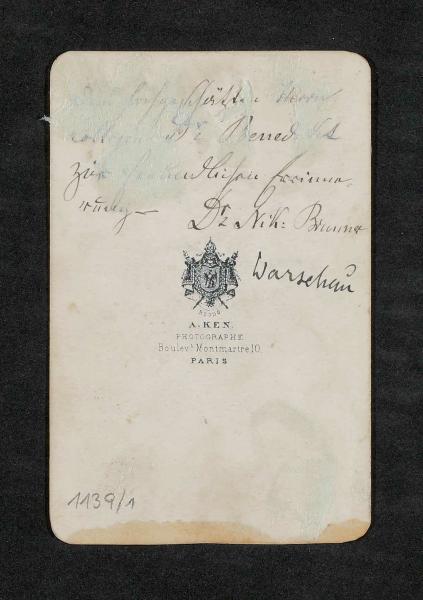 hochgeschätzten Herrn
Collegen Dr Benedikt
zur freundlichen Erinne-
rung – Dr Nik: Brunner
Warschau
DÉPOSÉ
A. KEN.
PHOTOGRAPHE
Boulevt Montmartre 10.
PARIS
1139/1